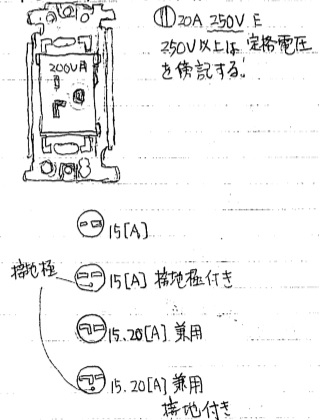 ⑪ 20A 250V E
250V以上は、定格電圧
を傍記する。
200V用
15[A]
接地極
15[A] 接地極付き
15.20[A] 兼用
15.20[A] 兼用
接地付き